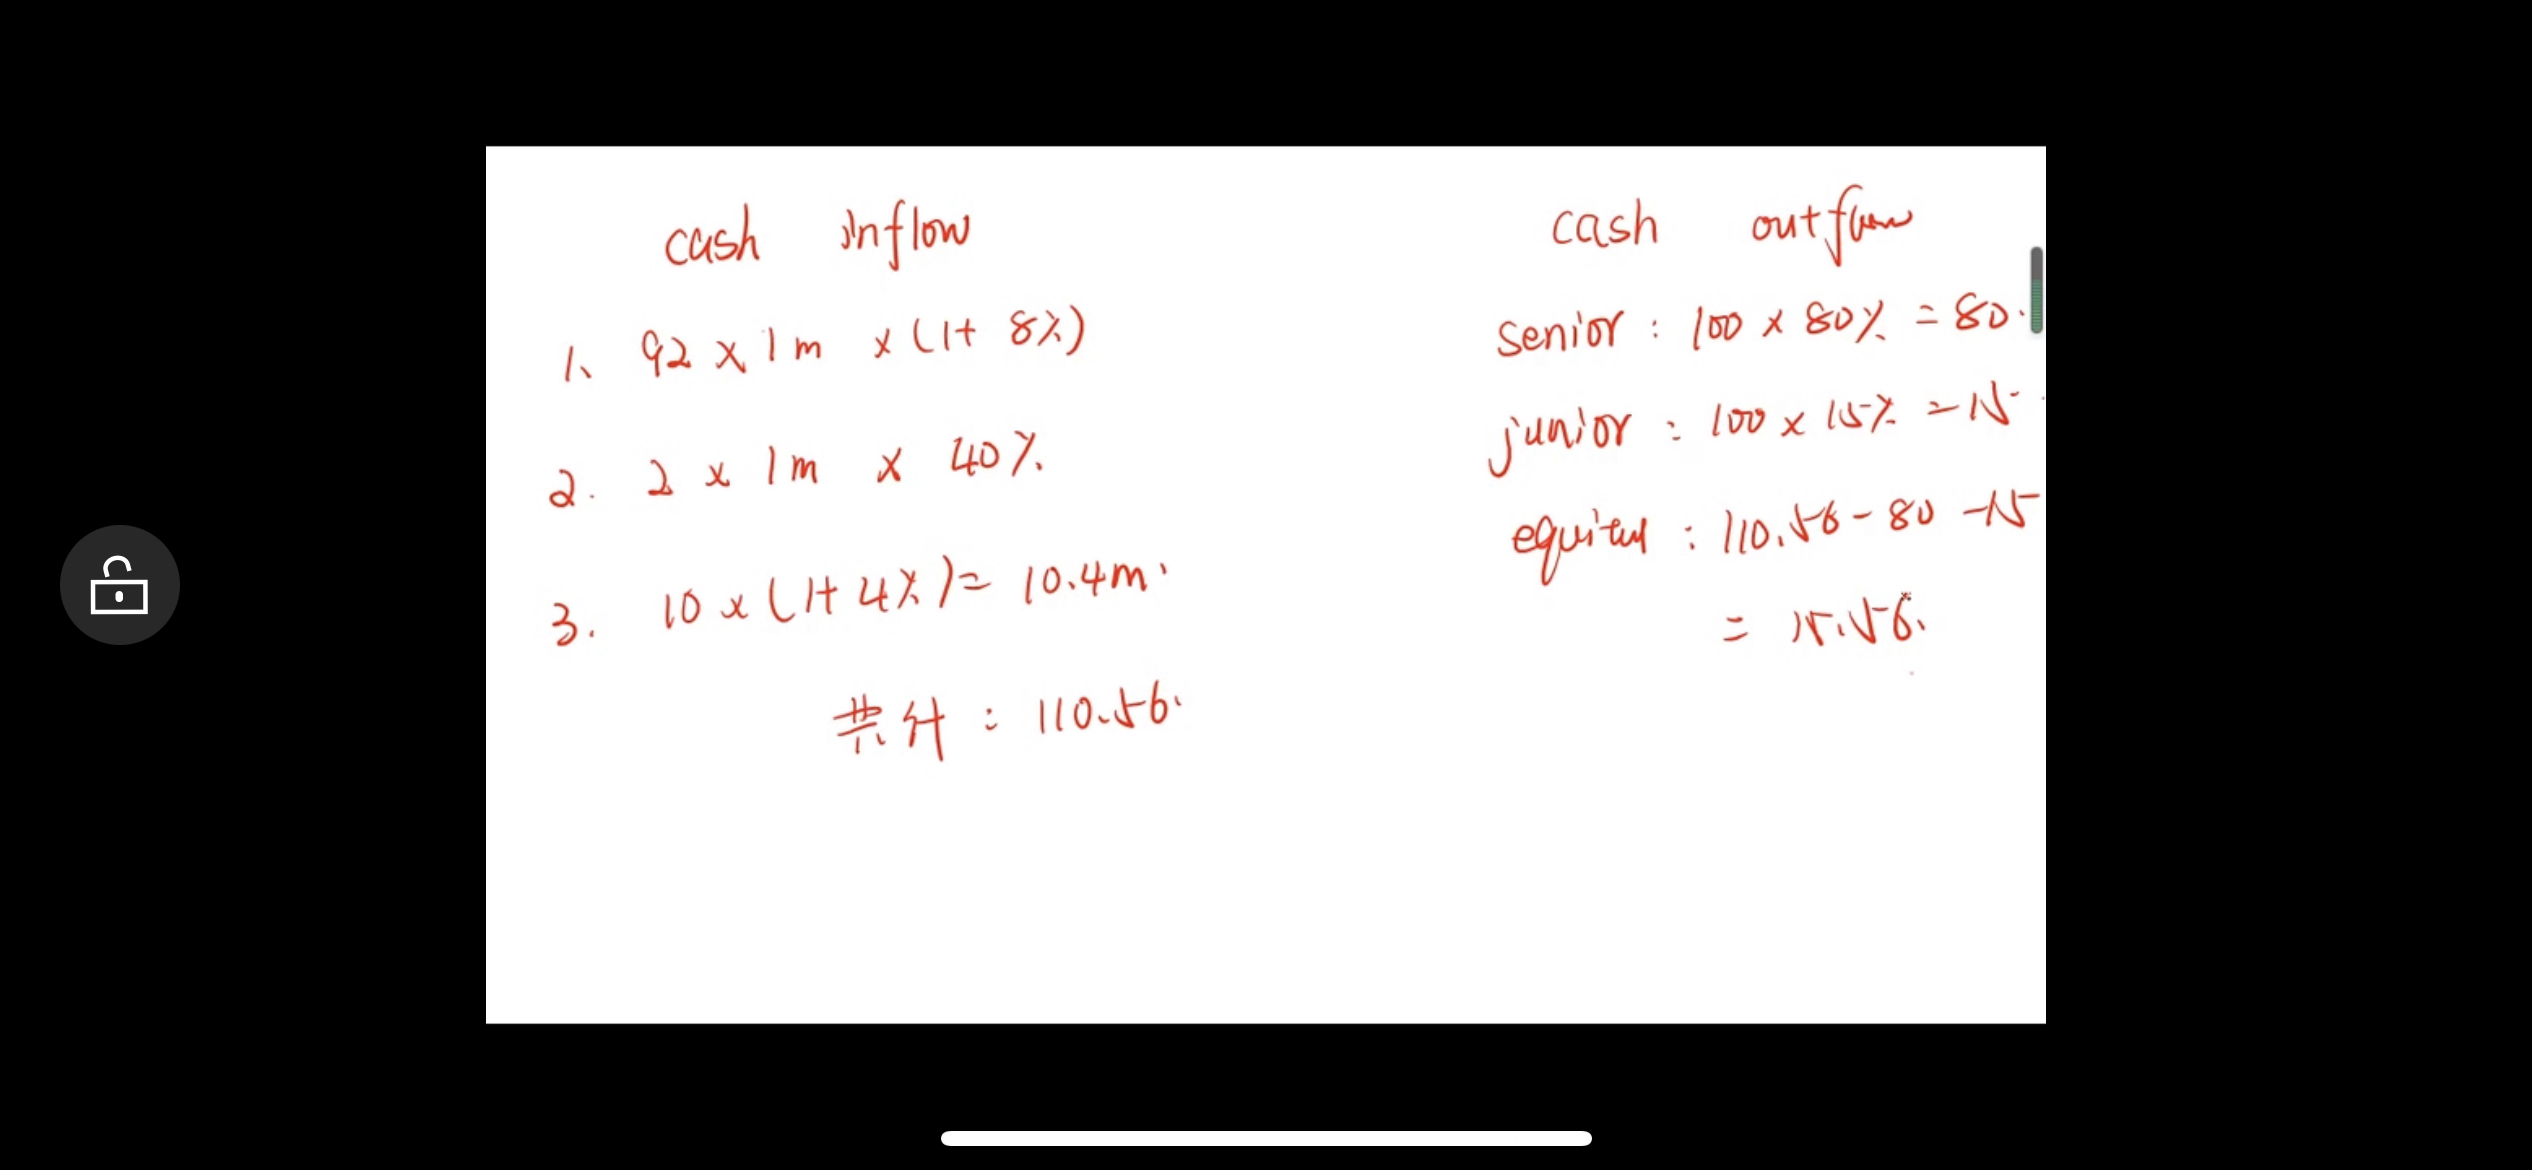 cash inflow
1、 92 x 1m x (1+ 8%)
2. 2 x 1m x 40%
3. 10 x (1+ 4%) = 10.4m.
共计: 110.56.
cash outflow
senior: 100 x 80% = 80.
junior: 100 x 15% = 15.
equity: 110.56 - 80 - 15
= 15.56.